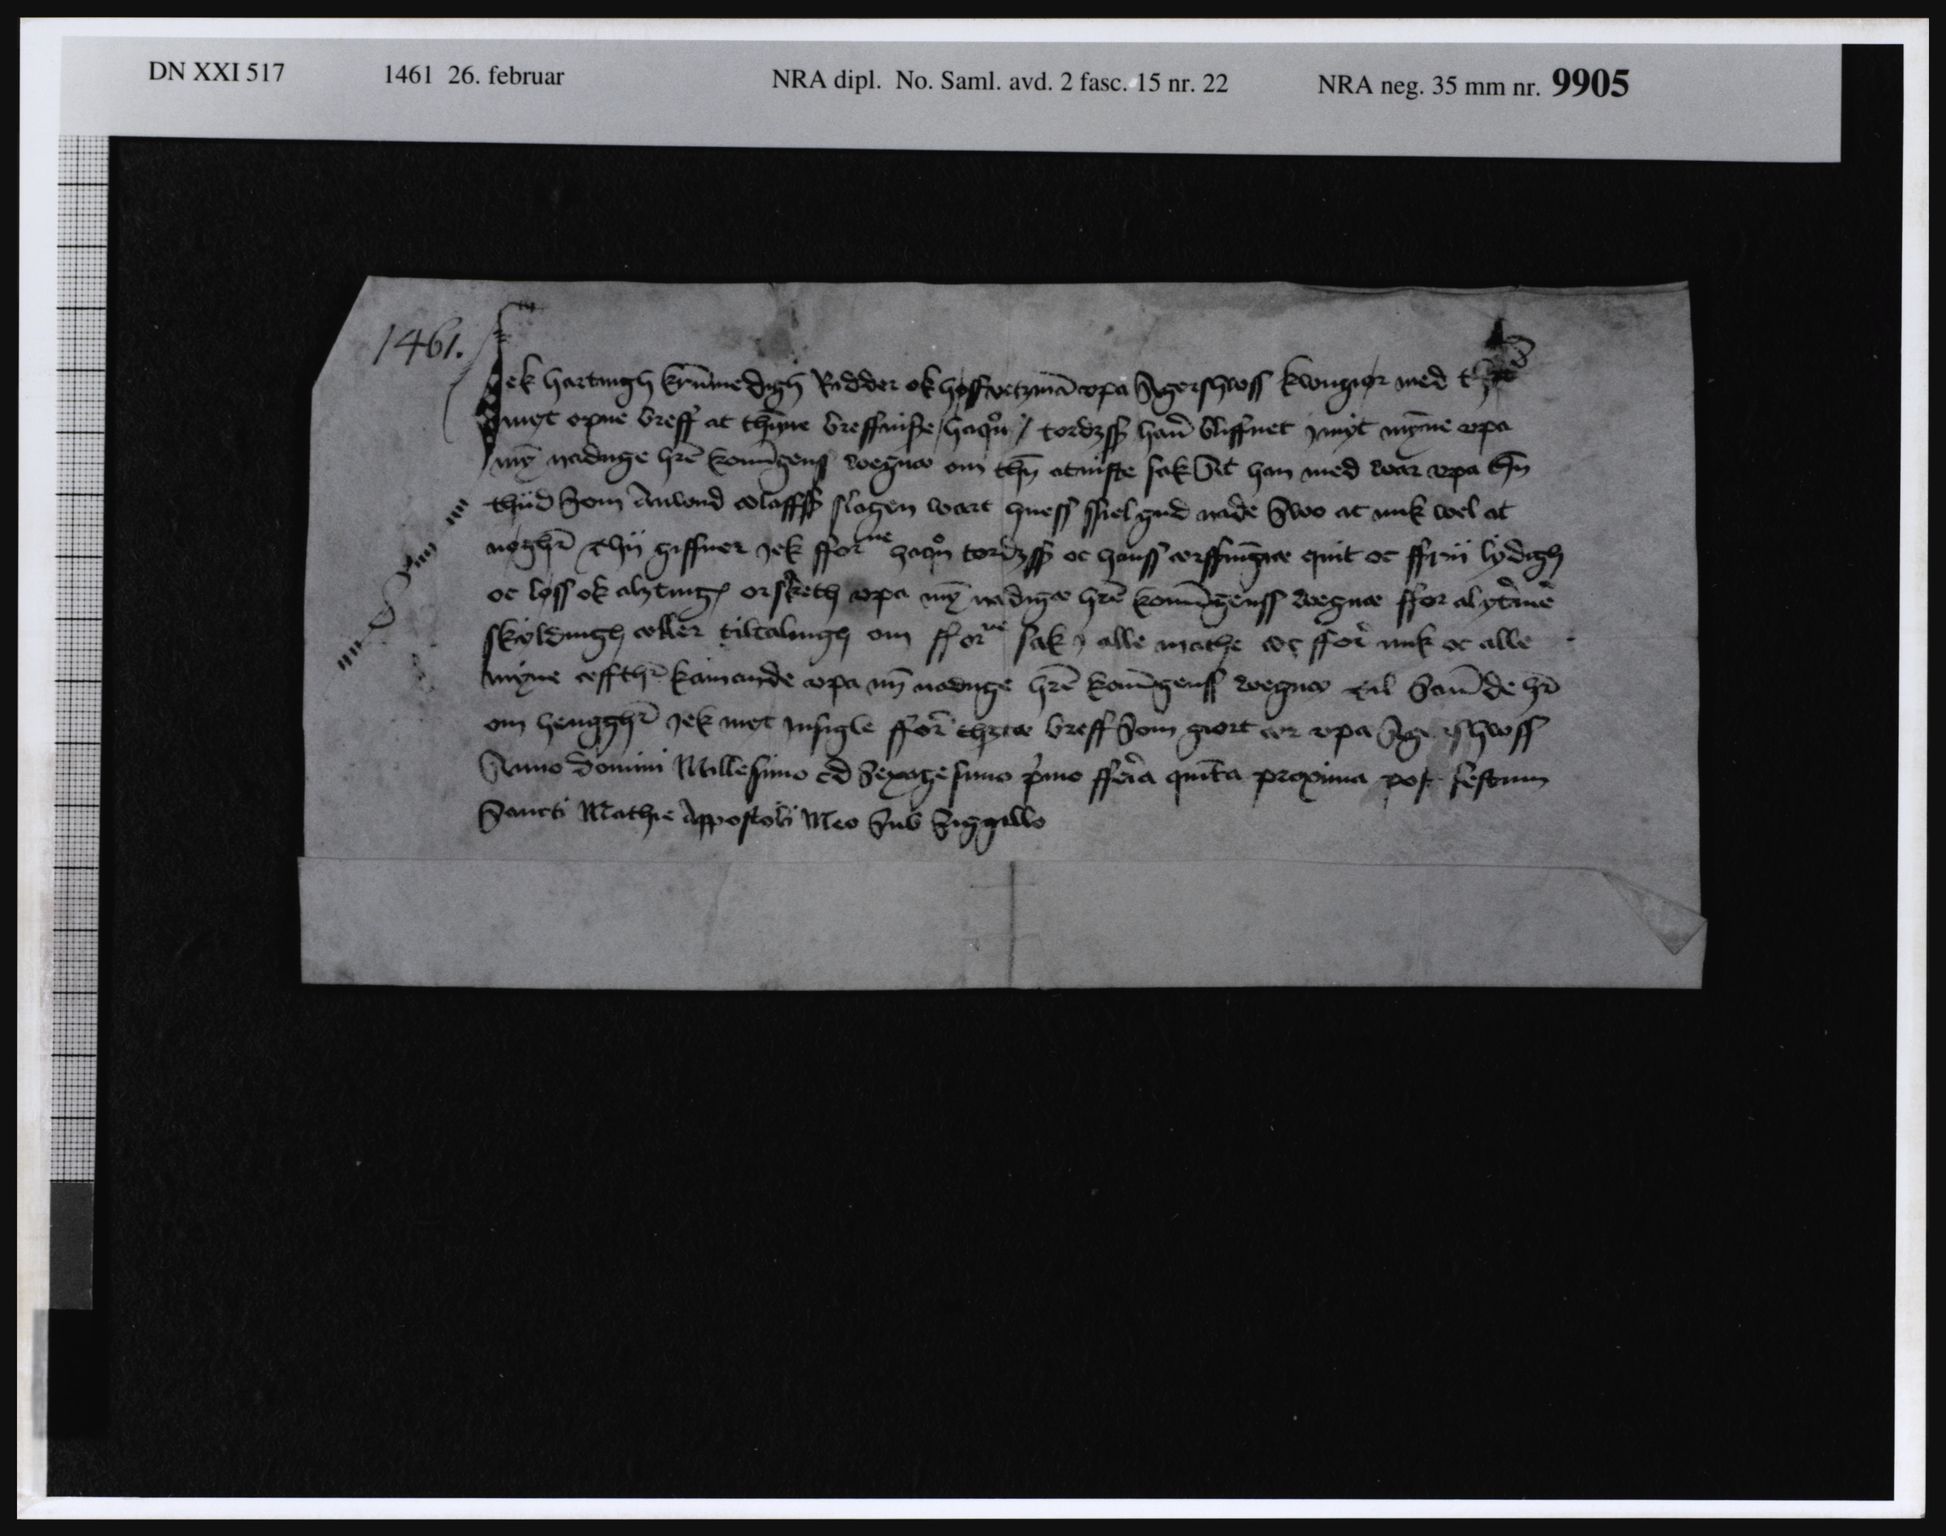 DN XXI 517 1461 26. februar NRA dipl. No. Saml. avd. 2 fasc. 15 nr. 22 NRA neg. 35 mm nr. 9905
1461.
Jek hartuigh krūmedigh Ridder ok hoffwetzmā vpa Agershwss kwngiør med
myt opne breff at thn̄ne breffuisere haquon tordzss haur̄ bliffuet j myt mynne vpa
myn̄ naduge hrē konūgens wegnæ om thn̄ atuiste sak At han med war vpa thn̄
thiid Som Anwnd olaffss slagen wart hwess siel gud nade Swo at mik wel at
nøghr̄ Thy giffuer jek fforne haquon tordzss oc hanss ærffuīgiæ quit oc ffrii lydigh
oc løss ok alztingx orsketh vpa myn̄ nadigæ hrē konūgenss wegnæ ffor al ytrme
skyldingh æller tiltalingh om fforne sak j alle mathe oc ffor mik oc alle
myne æffthr̄ kamande vpa myn̄ naduge hrē konūgenss wegnæ Til San̄de hr̄
om hengghr̄ jek myt jnsigle ffor̄ thettæ breff Som giort ær vpa Agershwss
Anno Domini Millesimo cd Sexagesimo p̄mo fferia quīta proxima post festum
Sancti Mathie Appostoli Meo Sub Siggillo